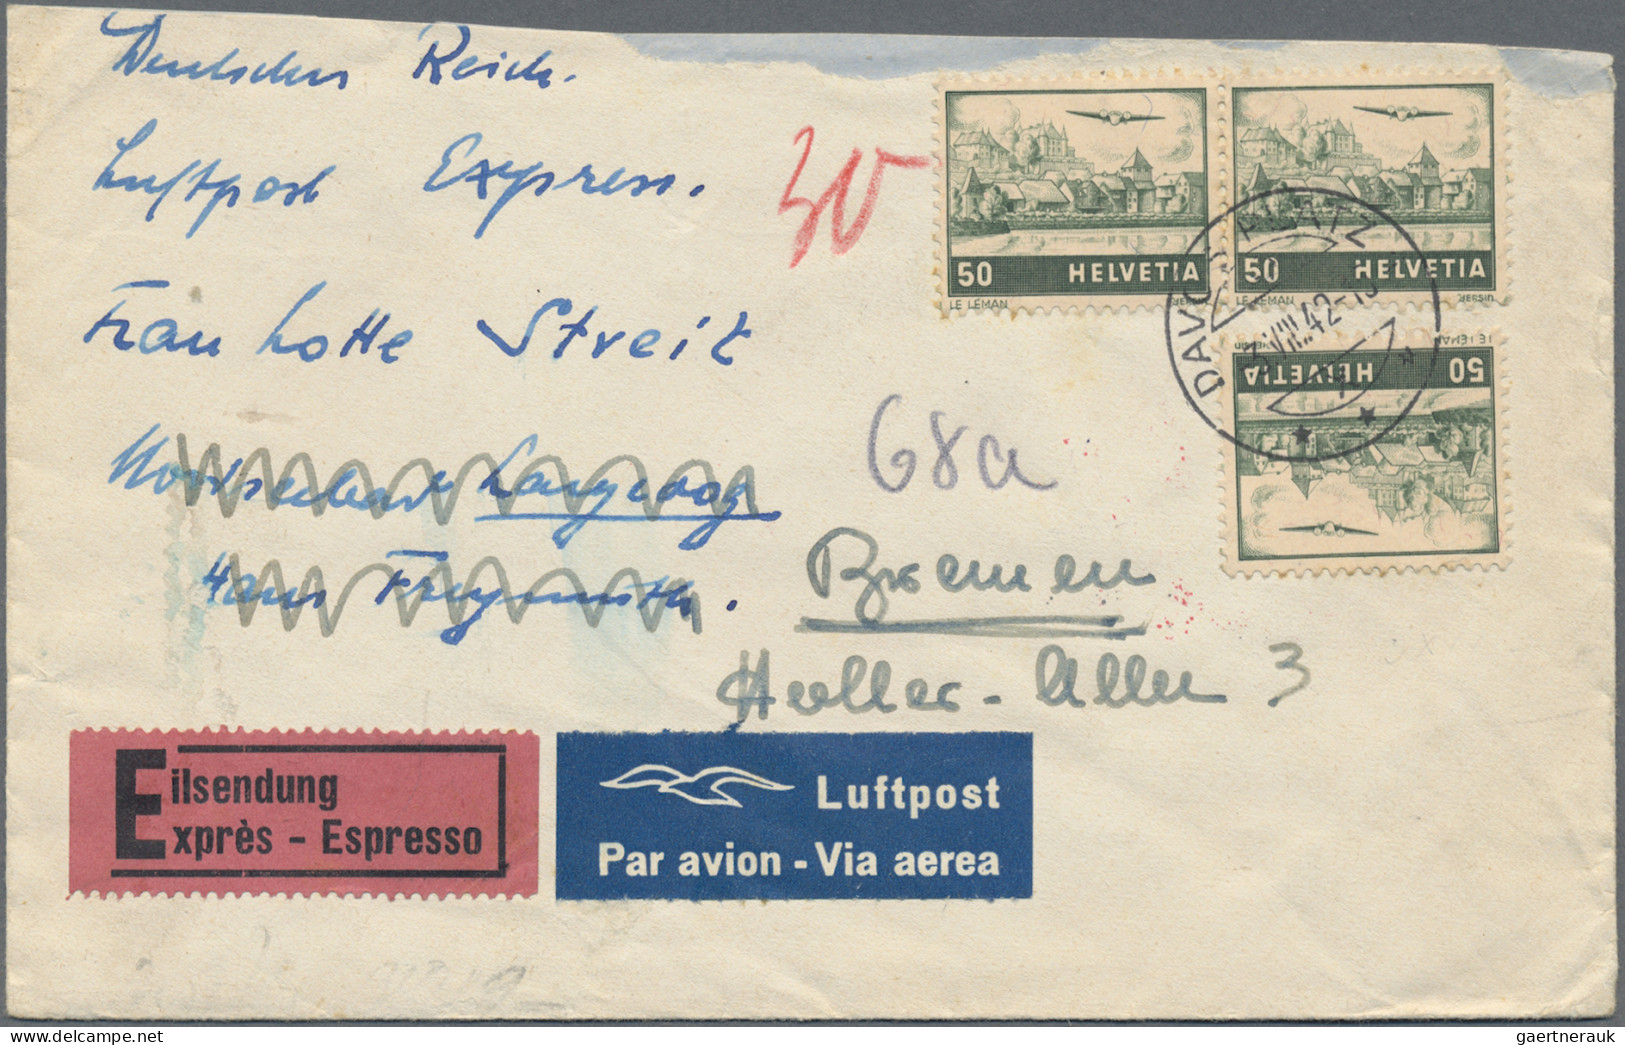 Deutsches Reich.
Luftpost Express.
30
Frau Lotte Streit
Nordseebad Langeoog
Haus Freymuth.
68a
Bremen
Holler-Allee 3
50 HELVETIA
LE LÉMAN BERSIER
50 HELVETIA
LE LÉMAN BERSIER
50 HELVETIA
LE LÉMAN
DAVOS PLATZ
VIII.42
Eilsendung
Exprès - Espresso
Luftpost
Par avion - Via aerea
gaertnerauk